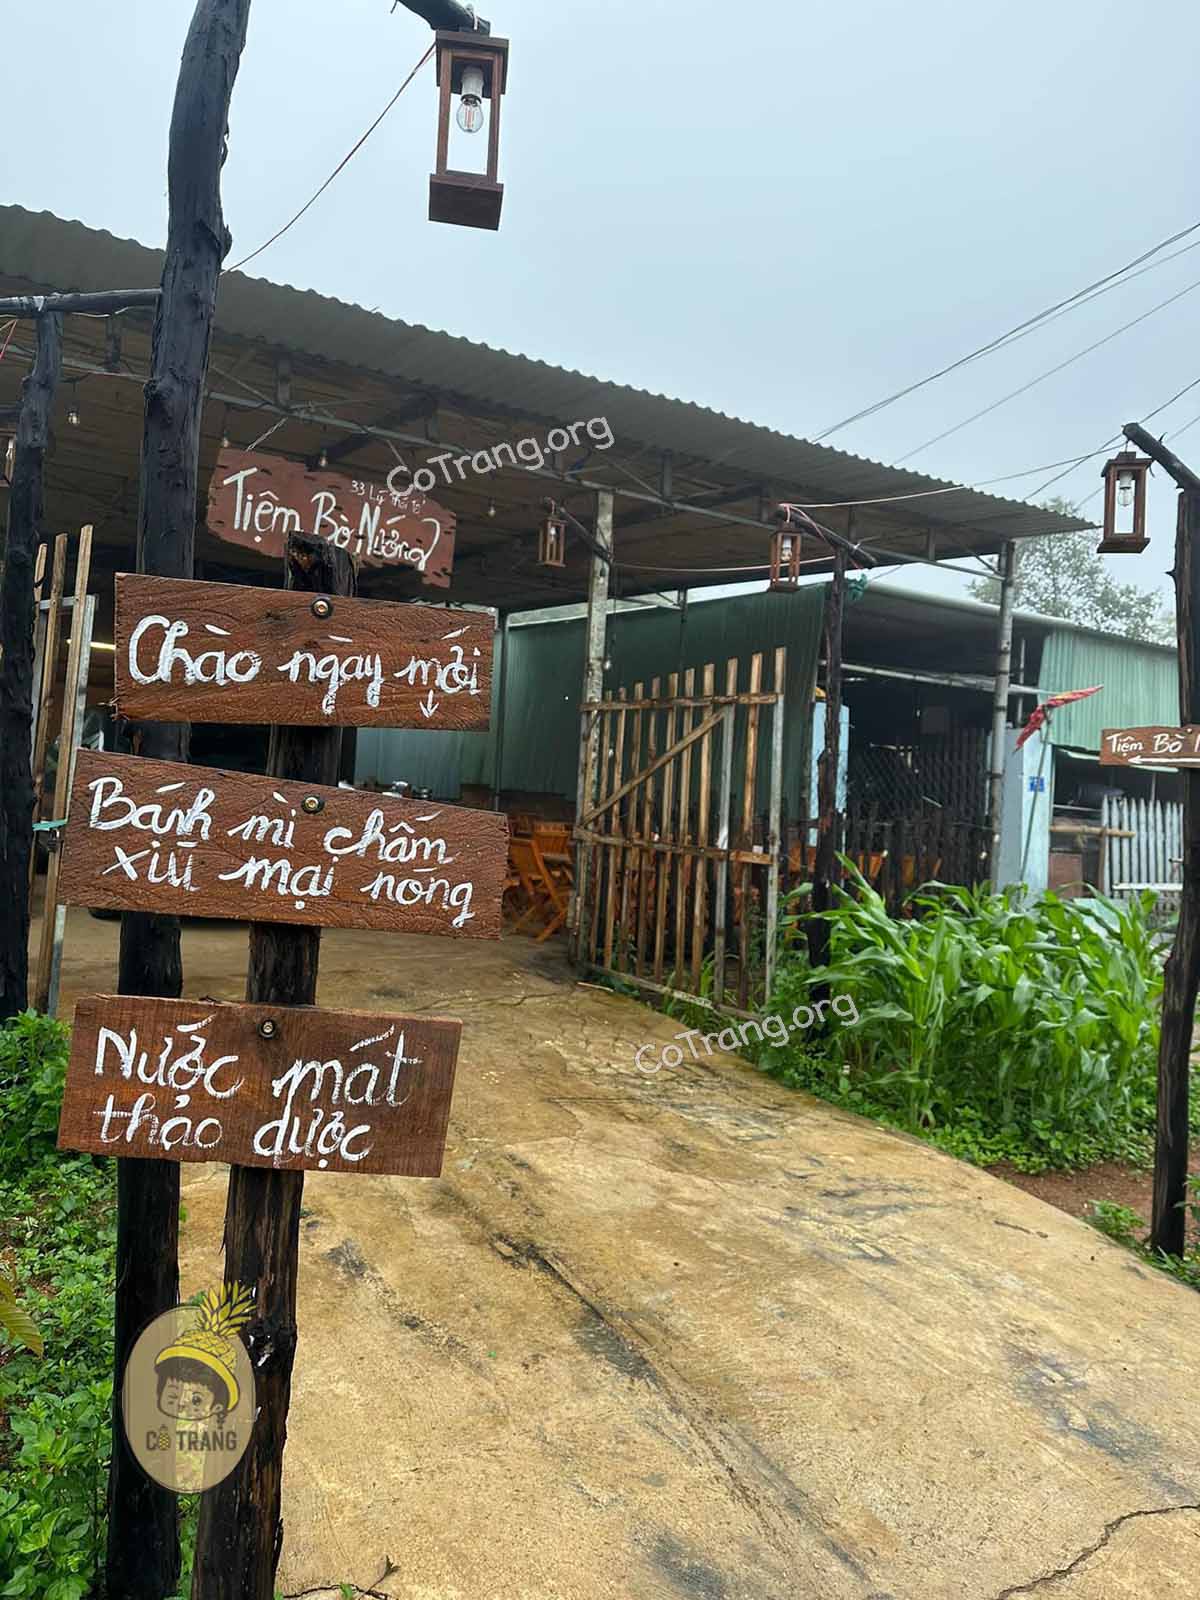 CoTrang.org
33 Lý Thái Tổ
Tiệm Bò Nướng
Chào ngày mới
Bánh mì chấm
xíu mại nóng
Tiệm Bò N
CoTrang.org
Nước mát
thảo dược
CÔ TRANG